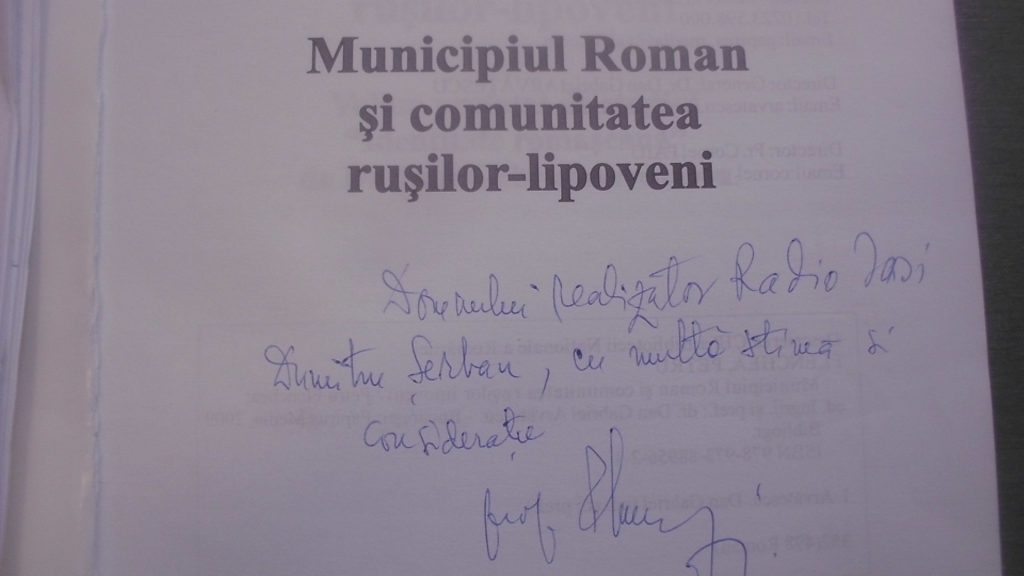 Municipiul Roman
şi comunitatea
ruşilor-lipoveni
Domnului realizator Radio Iasi
Dumitru Șerban, cu multă stimă si
considerație
prof.